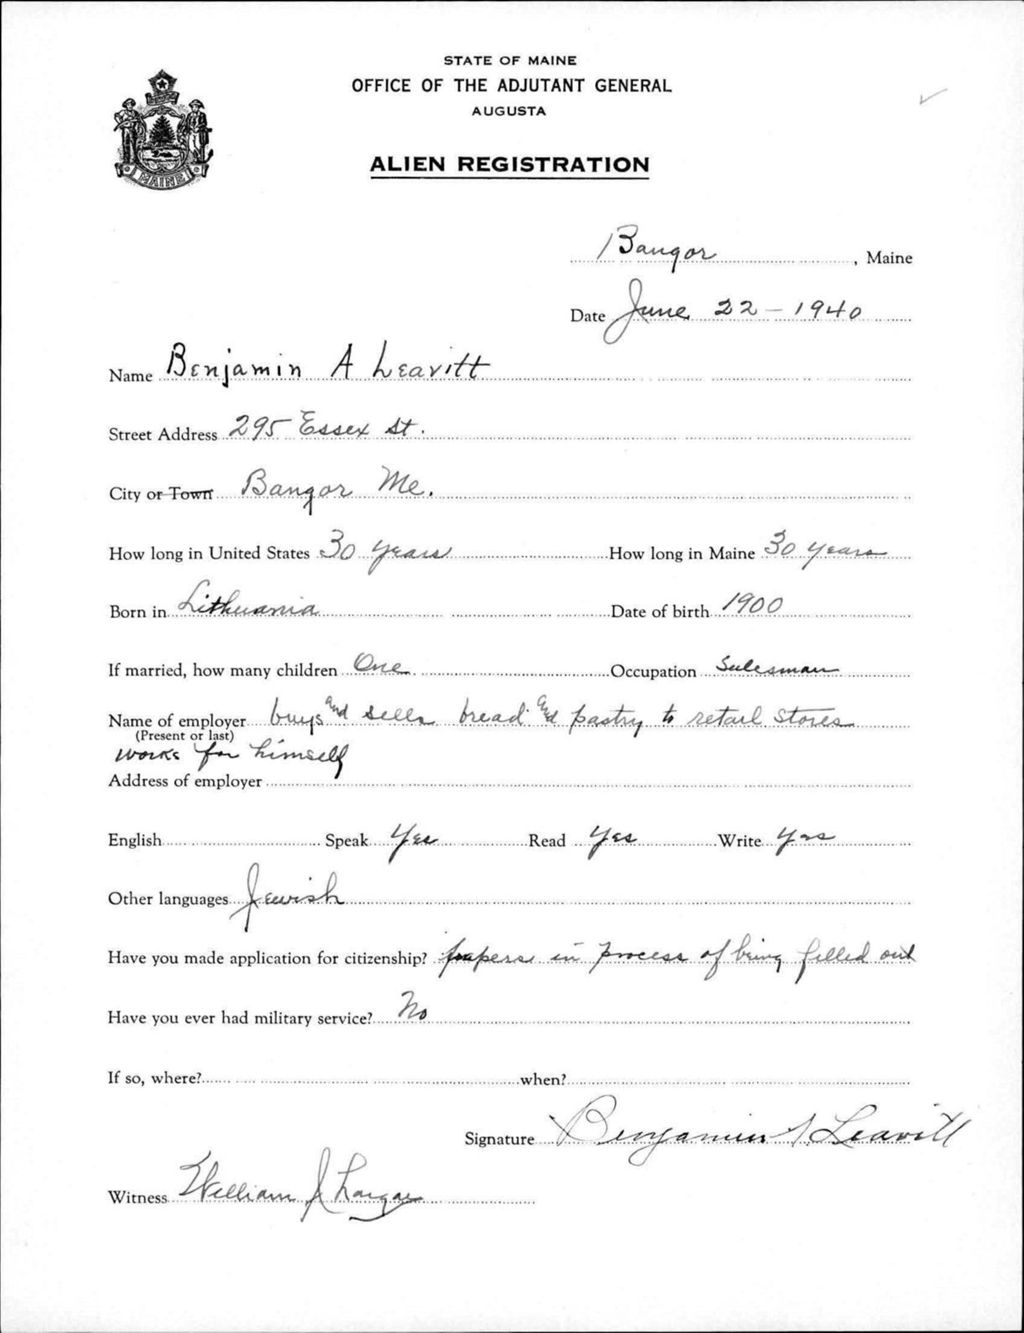 STATE OF MAINE
OFFICE OF THE ADJUTANT GENERAL
AUGUSTA
MAINE
ALIEN REGISTRATION
Bangor, Maine
Date June 22 - 1940
Name Benjamin A Leavitt
Street Address 295 Essex St.
City or Town Bangor Me.
How long in United States 30 years How long in Maine 30 years
Born in Lithuania Date of birth 1900
If married, how many children One Occupation Salesman
Name of employer buys and sells bread and pastry to retail stores
(Present or last)
works for himself
Address of employer
English Speak Yes Read Yes Write Yes
Other languages Jewish
Have you made application for citizenship? papers in process of being filled out
Have you ever had military service? No
If so, where? when?
Signature Benjamin A Leavitt
Witness William J